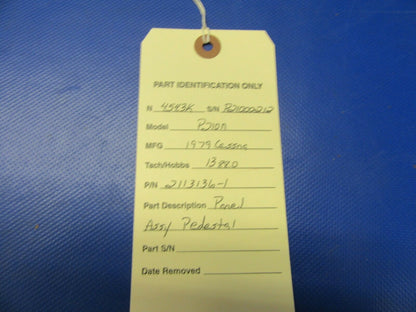 PART IDENTIFICATION ONLY
N 4543K S/N P21000212
Model P210N
MFG 1979 Cessna
Tach/Hobbs
P/N 2113136-1
Part Description Panel
Assy Pedestal
Part S/N
Date Removed